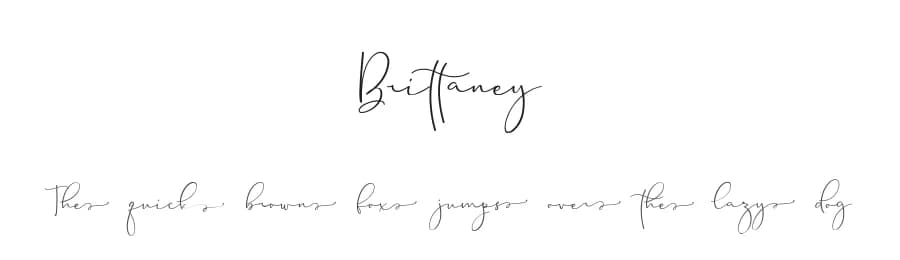 Brittaney
The quick brown fox jumps over the lazy dog